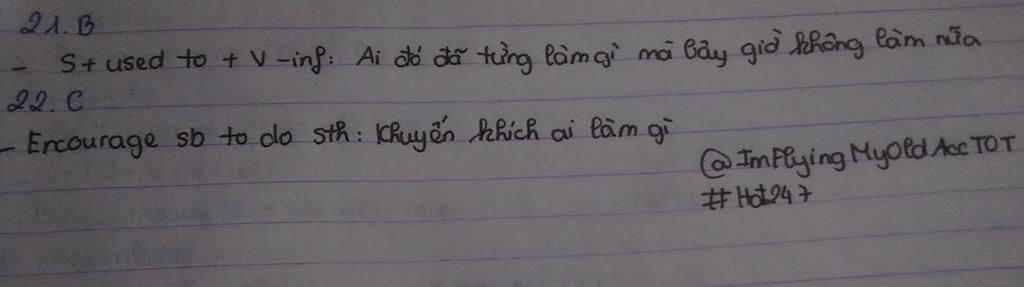 21. B
- S + used to + V-inf: Ai đó đã từng làm gì mà bây giờ không làm nữa
22. C
- Encourage sb to do sth: Khuyến khích ai làm gì
@ImFlyingMyOldAccTOT
#Hoi247